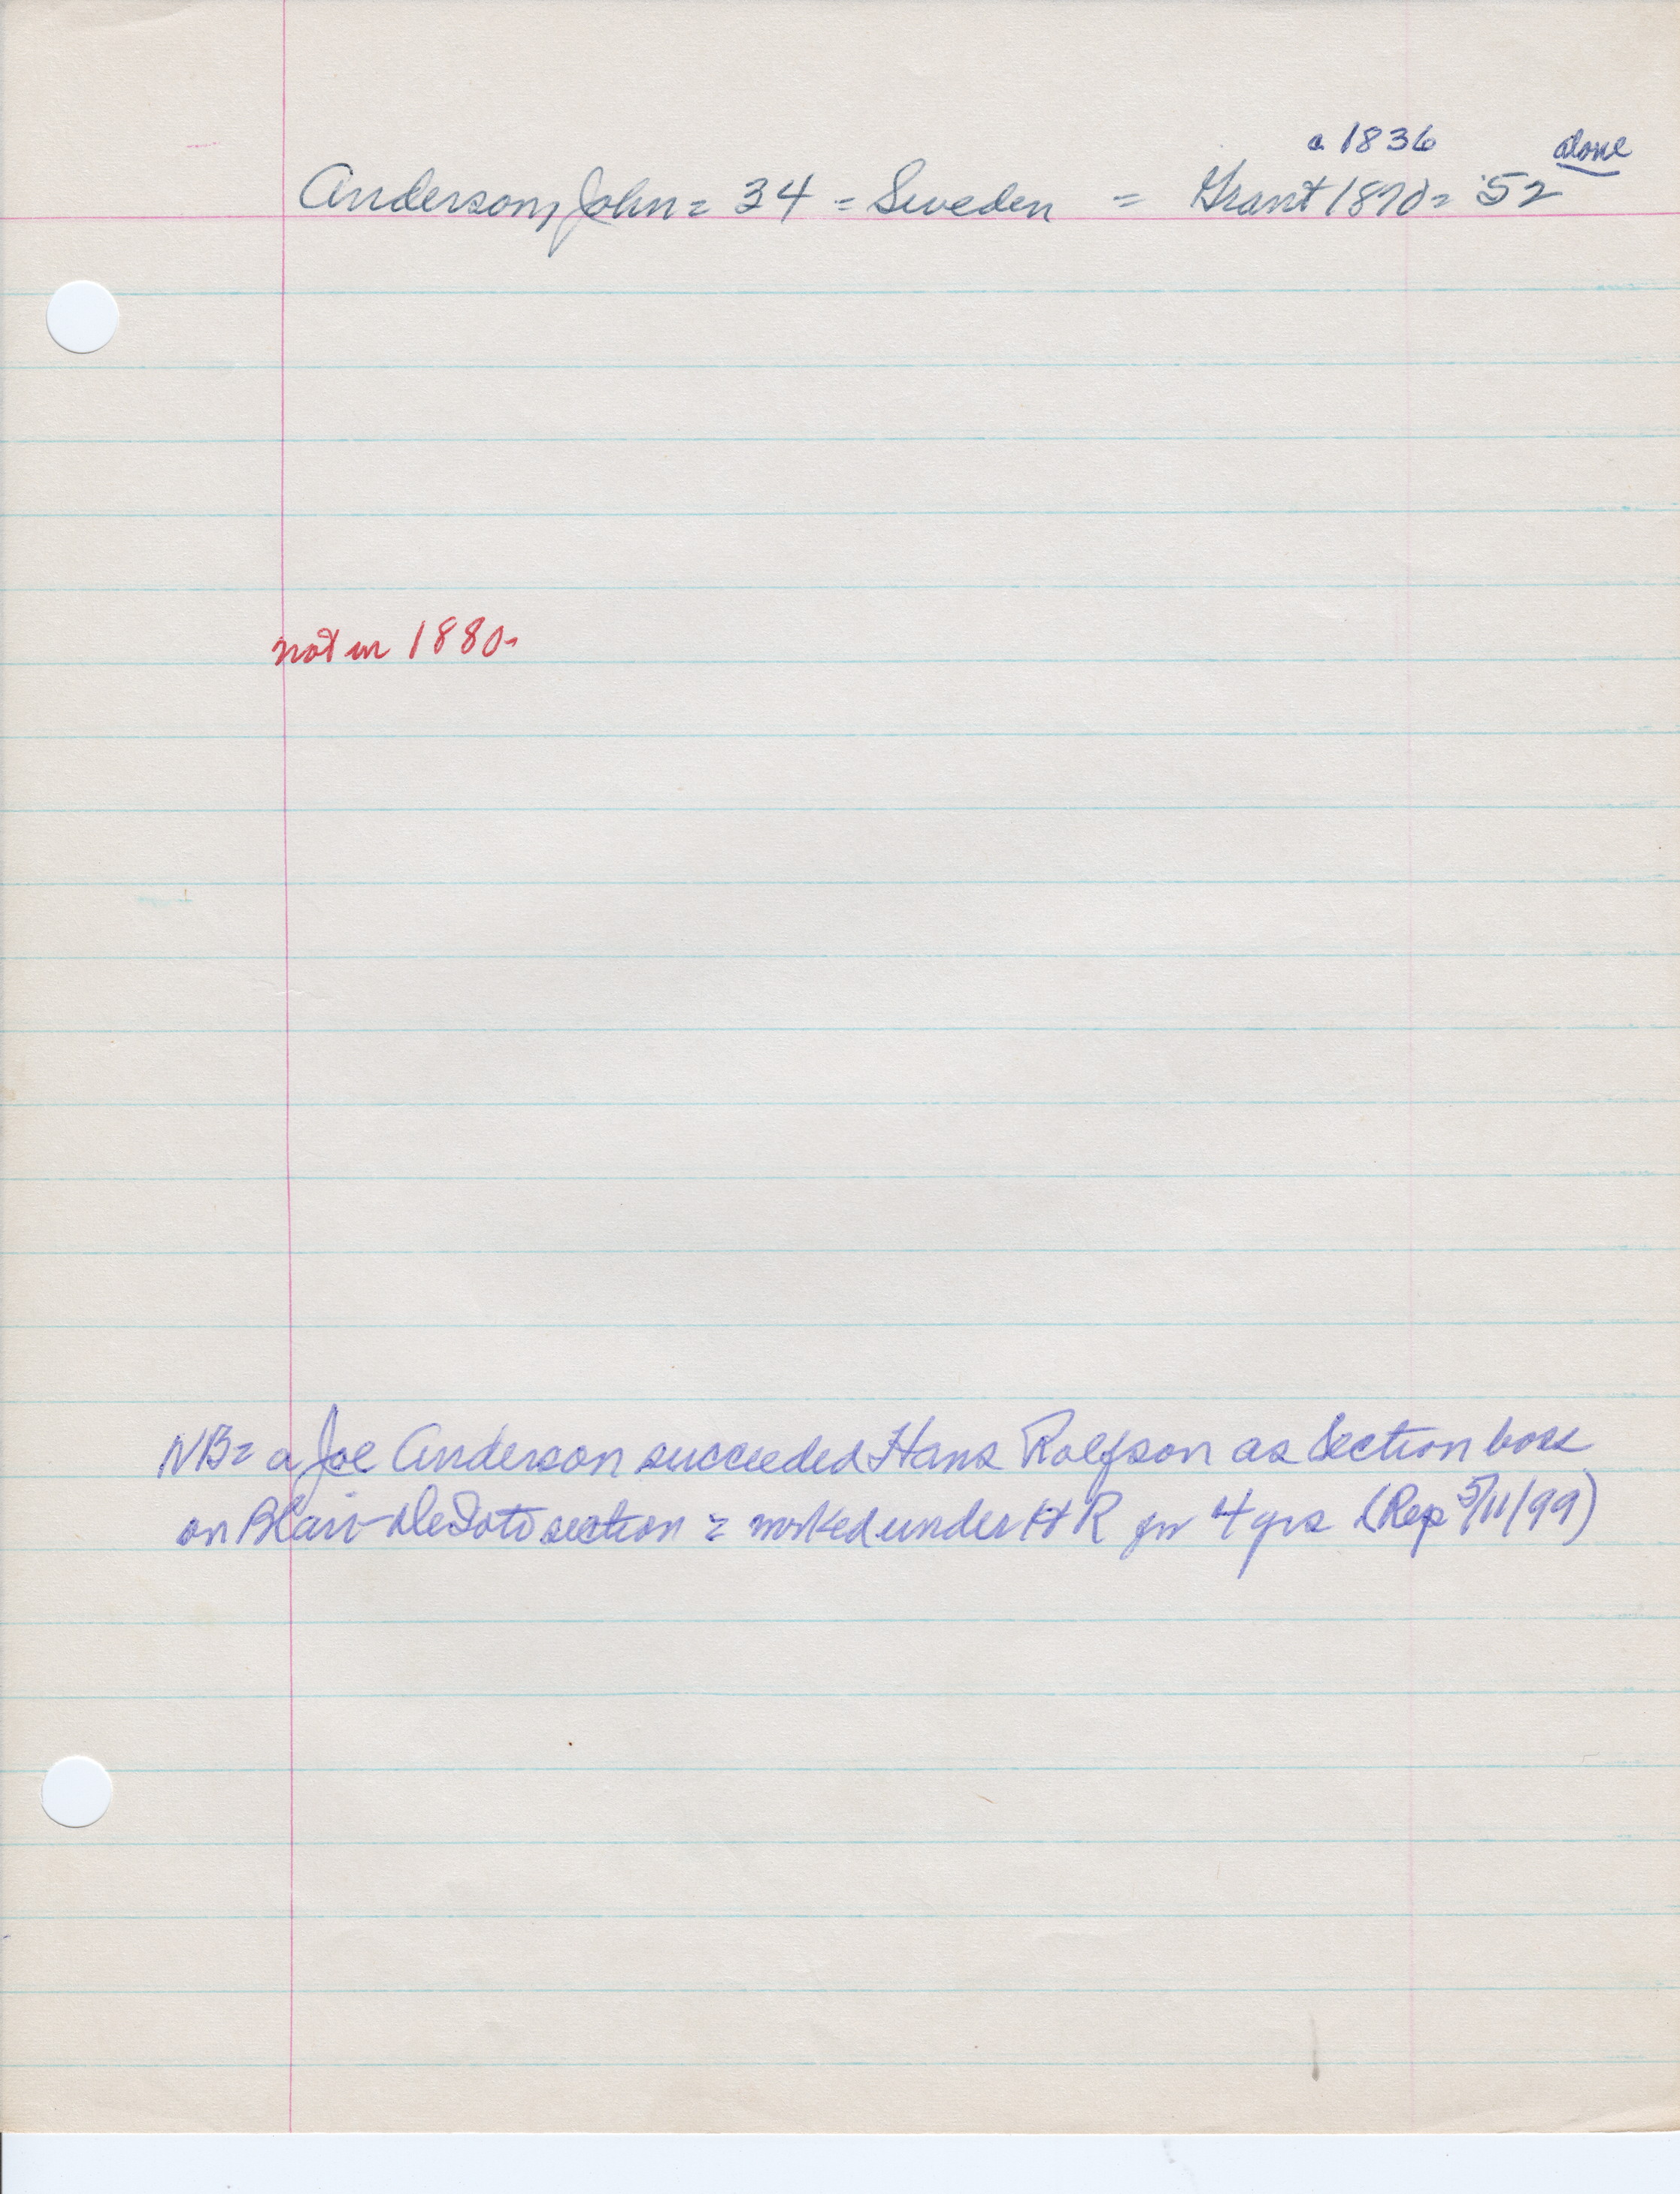 a 1836 alone
Anderson, John = 34 = Sweden = Grant 1870 = 52
not in 1880-
NB = a Joe Anderson succeeded Hans Rolfson as Section boss
on Blair-DeSoto section = worked under HR for 4 yrs (Rep 5/11/99)